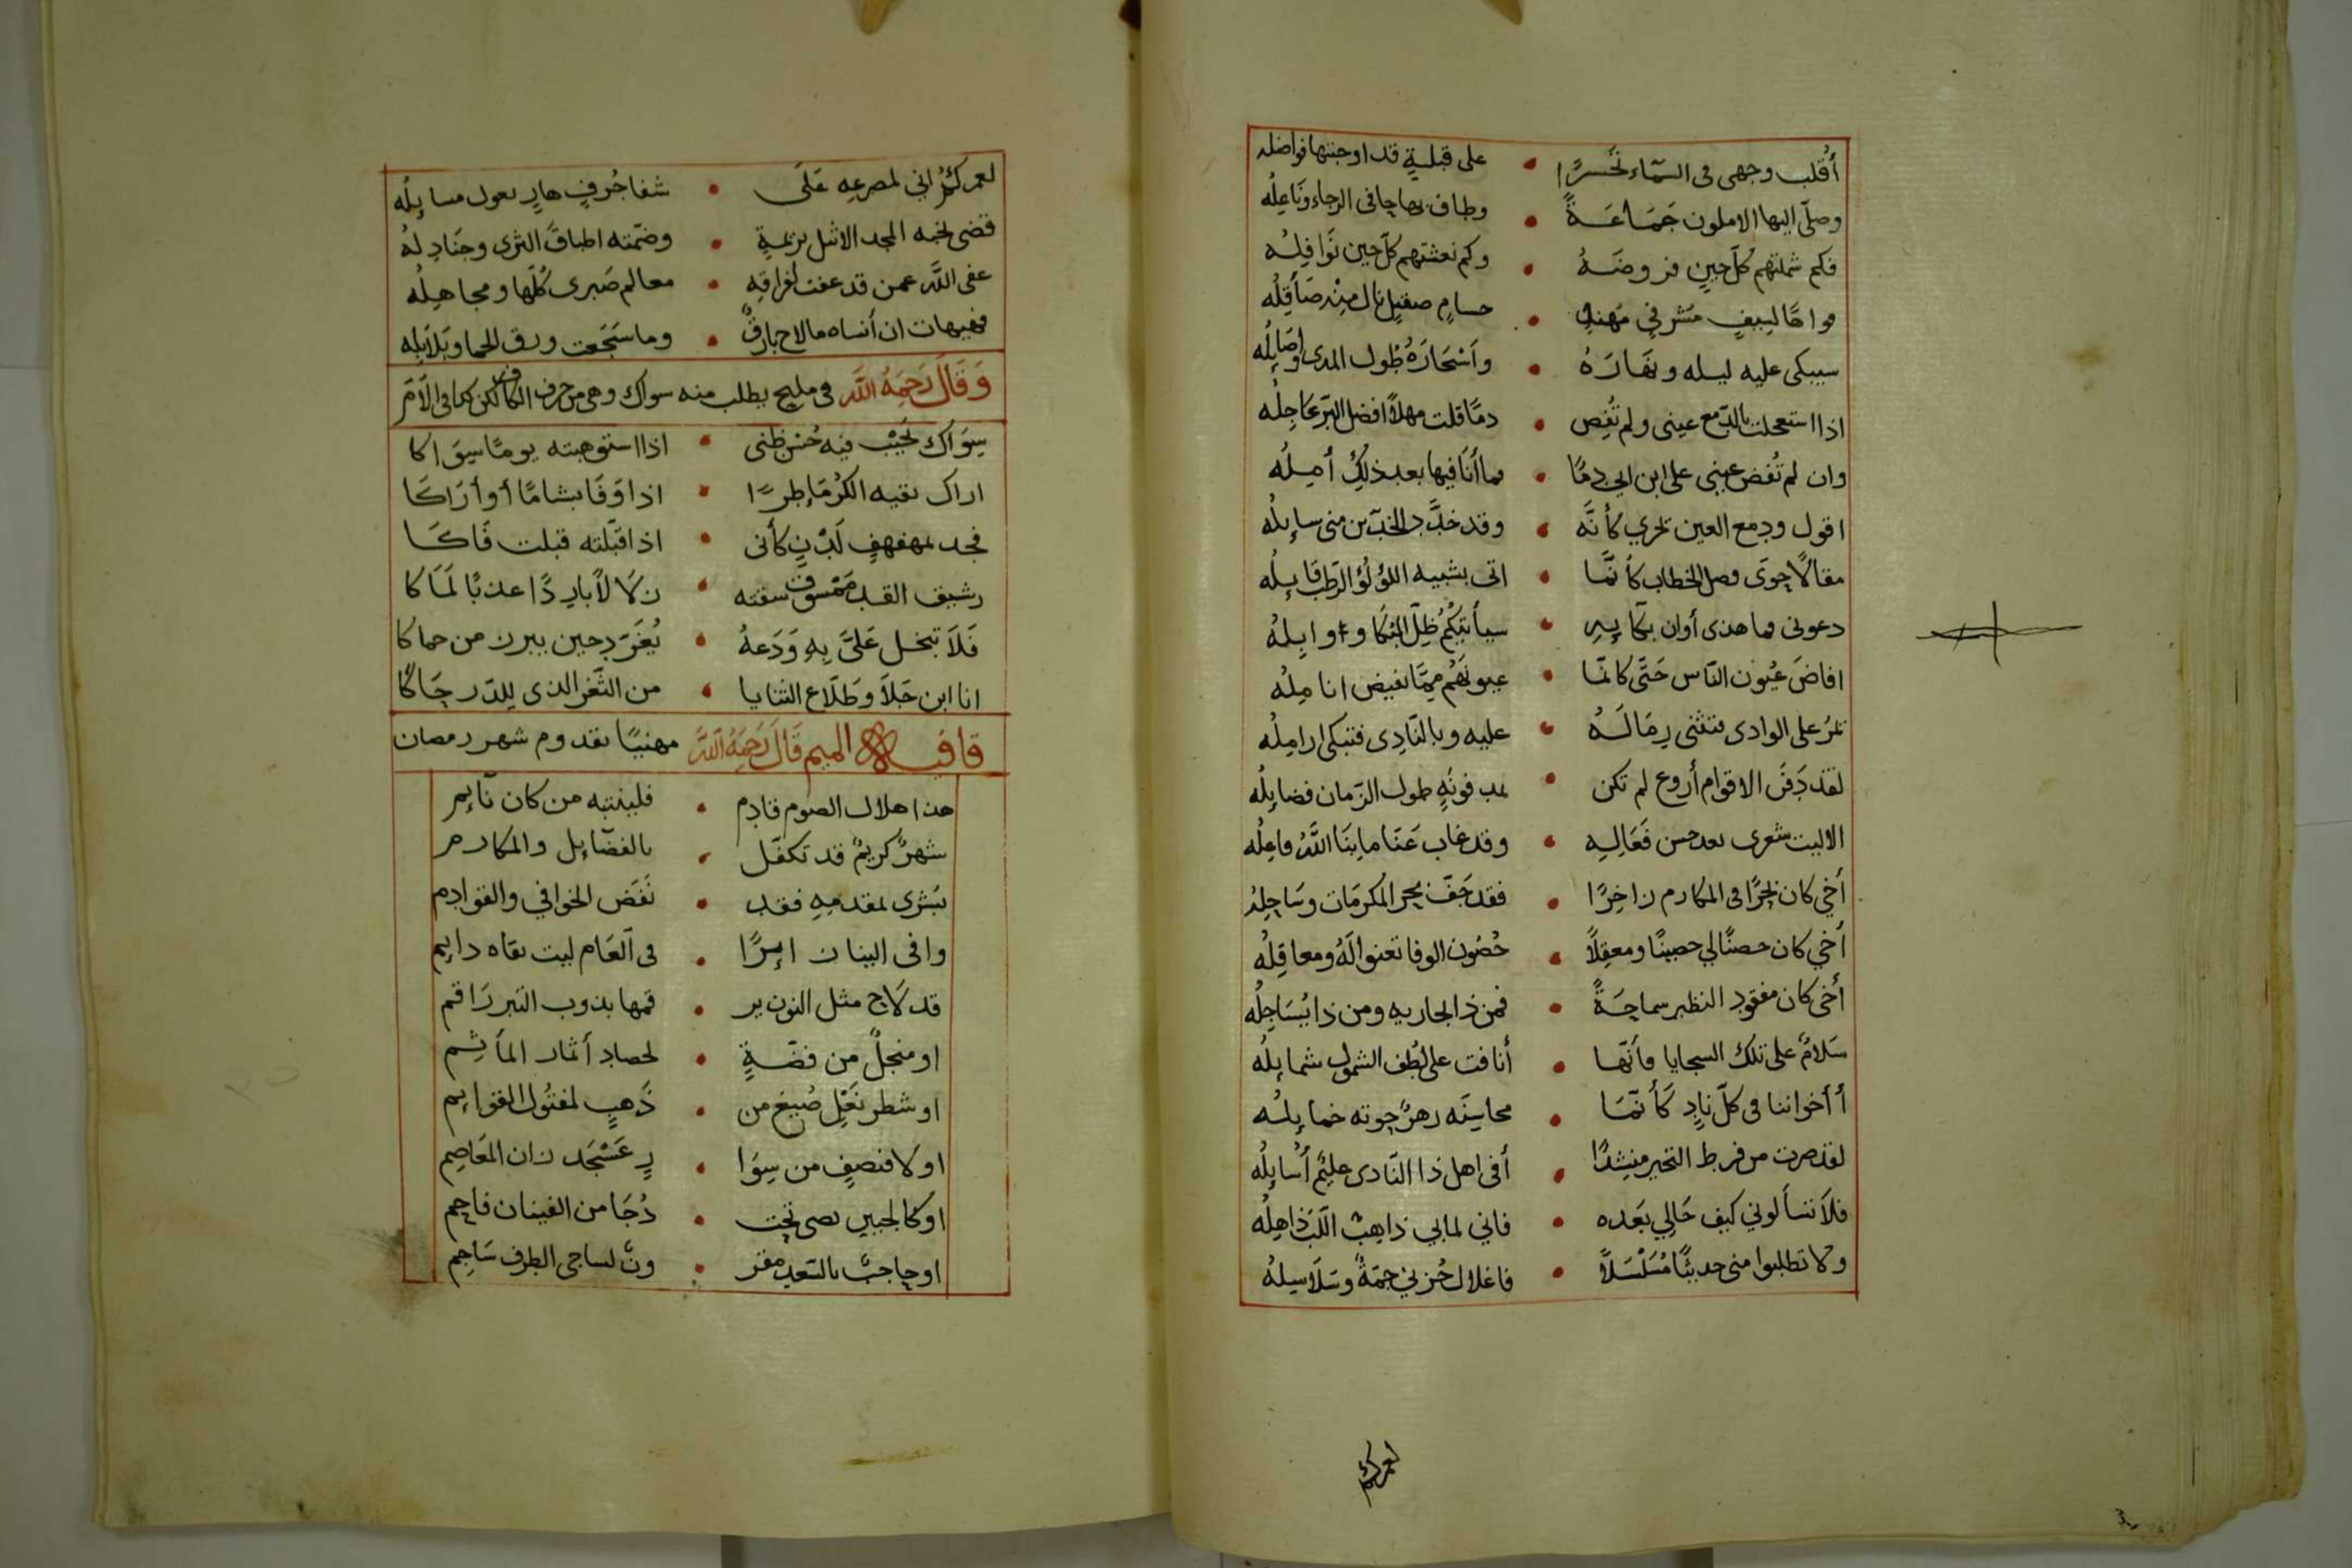 أُقلب وجهي في السّماء تحسّرًا • على قبلةٍ قد اوجبتها فواضله
وصلّى اليها الاملون جَمَاعَةً • وطاف بها حافي الرجاء ونَاعِلُه
فكم شملتهم كلّ حينٍ فروضَهُ • وكم نعشتهم كلّ حين نَوَافِلُه
فواهًا لسيفٍ مشرفيّ مهندٍ • حسامٍ صقيلٍ نال منه صَأقِلُه
سيبكي عليه ليله ونهَارَهُ • وأسْحَارَهُ طُول المدى واصَايِلُه
اذا استعجلت بالدّمع عيني ولم تُفِض • دمًا قلت مهلاً افضل البرّ عَاجِلُه
وان لم تُفض عيني على ابن ابي دمًا • فما أنَا فيها بعد ذلكَ أمِلُه
اقول ودمع العين تجري كأنَّه • وقد خدَّد الخدّين مني سايلُه
مقالًا حوَى وصل الخطاب كأنَّما • اتى بشبيه اللؤلؤ الرّطب قايلُه
دعوني فما هذى أوان بكَايِهِ • سيأتيكُم ظلّ البُكا و وابِلُهُ
افاضَ عُيُون النّاس حَتَّى كانمّا • عيونَهُم ممّا تفيض اناملُه
تمرُّ على الوادى فتثنى رِمَالَهُ • عليه وبالنّادِى فتبكى اراملُه
لقد دَفَنَ الاقوام أروع لم تكن • بمدفونَةٍ طول الزّمان فضايلُه
الا ليت شعرى بعد حسن فَعَالِهِ • وقد غاب عَنّا ما بِنَا اللهُ فاعِلُه
أخي كان بحرًا في المكارم زاخِرًا • فقد جَفّ بحر المكرمَات وسَاحِلُهُ
أخي كان حصنًا لي حصينًا ومعقِلاً • حُصُون الوفا تعنوا لَهُ ومعاقِلُه
أخي كان مفقود النظير سماحَةً • فمن ذا يجاريه ومن ذا يُسَاجِلُه
سَلامٌ على تلك السجايا فأنّها • أنافت على لُطف الشمول شمايلُه
أأخواننا في كلّ نادٍ كَأنّمَا • محاسِنَه زهرٌ حوته خمايلُه
لقد صرت من فرط التحير منشِدًا • أفي اهل ذا النّادى عليمٌ أُسايلُه
فلا تسألوني كيف حَالِي بعَده • فاني لما بي ذاهبُ اللّبّ ذاهِلُه
ولا تطلبوا مني حديثًا مُسَلْسَلاً • فاغلال حُزني جمّةٌ وسَلاسِلُهُ
لعمركم
لعمركمُ اني لمصرعه عَلَى • شفا جُرفٍ هارٍ يعول مسايلُه
قضى نحبه المجد الاثيل بزعمهِ • وضمّته اطباقَ الثرى وجنَادِلُهُ
عفى اللّه عمن قد عفت لفراقِهِ • معالم صَبرى كُلّها ومجاهِلُه
فهيهات ان أنساه ما لاح بارقٌ • وما سَجَعت ورق الحما وبَلاَبِله
وَقَالَ رَحِمَهُ اللَّه في مليح يطلب منه سواك وهى من حرف الكاف لكن كما في الأمّ
سِوَاك نُحَيْب فيه حُسْن ظنى • اذا استوهبته يومًا سِوَاكا
اراك نقيه الكُرمَا طرًا • اذا وَفَا بشامًا أو أرَاكَا
فجد بمهفهفٍ لَدْنٍ كأنى • اذا قبّلته قبلت فَاكَا
رشيق القد ممشوق سقته • زلالاً باردًا عذبًا لَمَاكا
فَلاَ تبخل عَلىَّ بِهِ وَدَعهُ • يُغَرّد حين يبرز من حماكا
انا ابن جَلاَ وطَلاع الثنايا • من الثّغر الذي للدّر حَاكا
قافيه الميم قَالَ رَحِمَهُ اللَّه مهنيًا بقدوم شهر رمضان
هذا هلال الصوم قادم • فلينتبه من كان نَايم
شهرٌ كريمٌ قد تكفّل • بالفضَايل والمكارم
بشرى بمقدمِهِ فقد • نَفَض الخوافي والقوادِم
وافى البنان ابرًا • في العَام ليت بقاه دايم
قد لاح مثل النون ير • قمها بذوب التبر رَاقم
او منجلٌ من فضّةٍ • لحصاد أثمار المأثِم
او شطر نَعْلٍ صُيغ من • ذَهبٍ لمفتُول القوايم
اولا فنصفٍ من سِوَا • رِ عَسْجَد زان المعَاصِم
او كالجبين بصى تحت • دُجَا من الفينان فاحِم
او حاجبٌ بالسّعد مقر • ونٌ لساجى الطرف سَاجِم